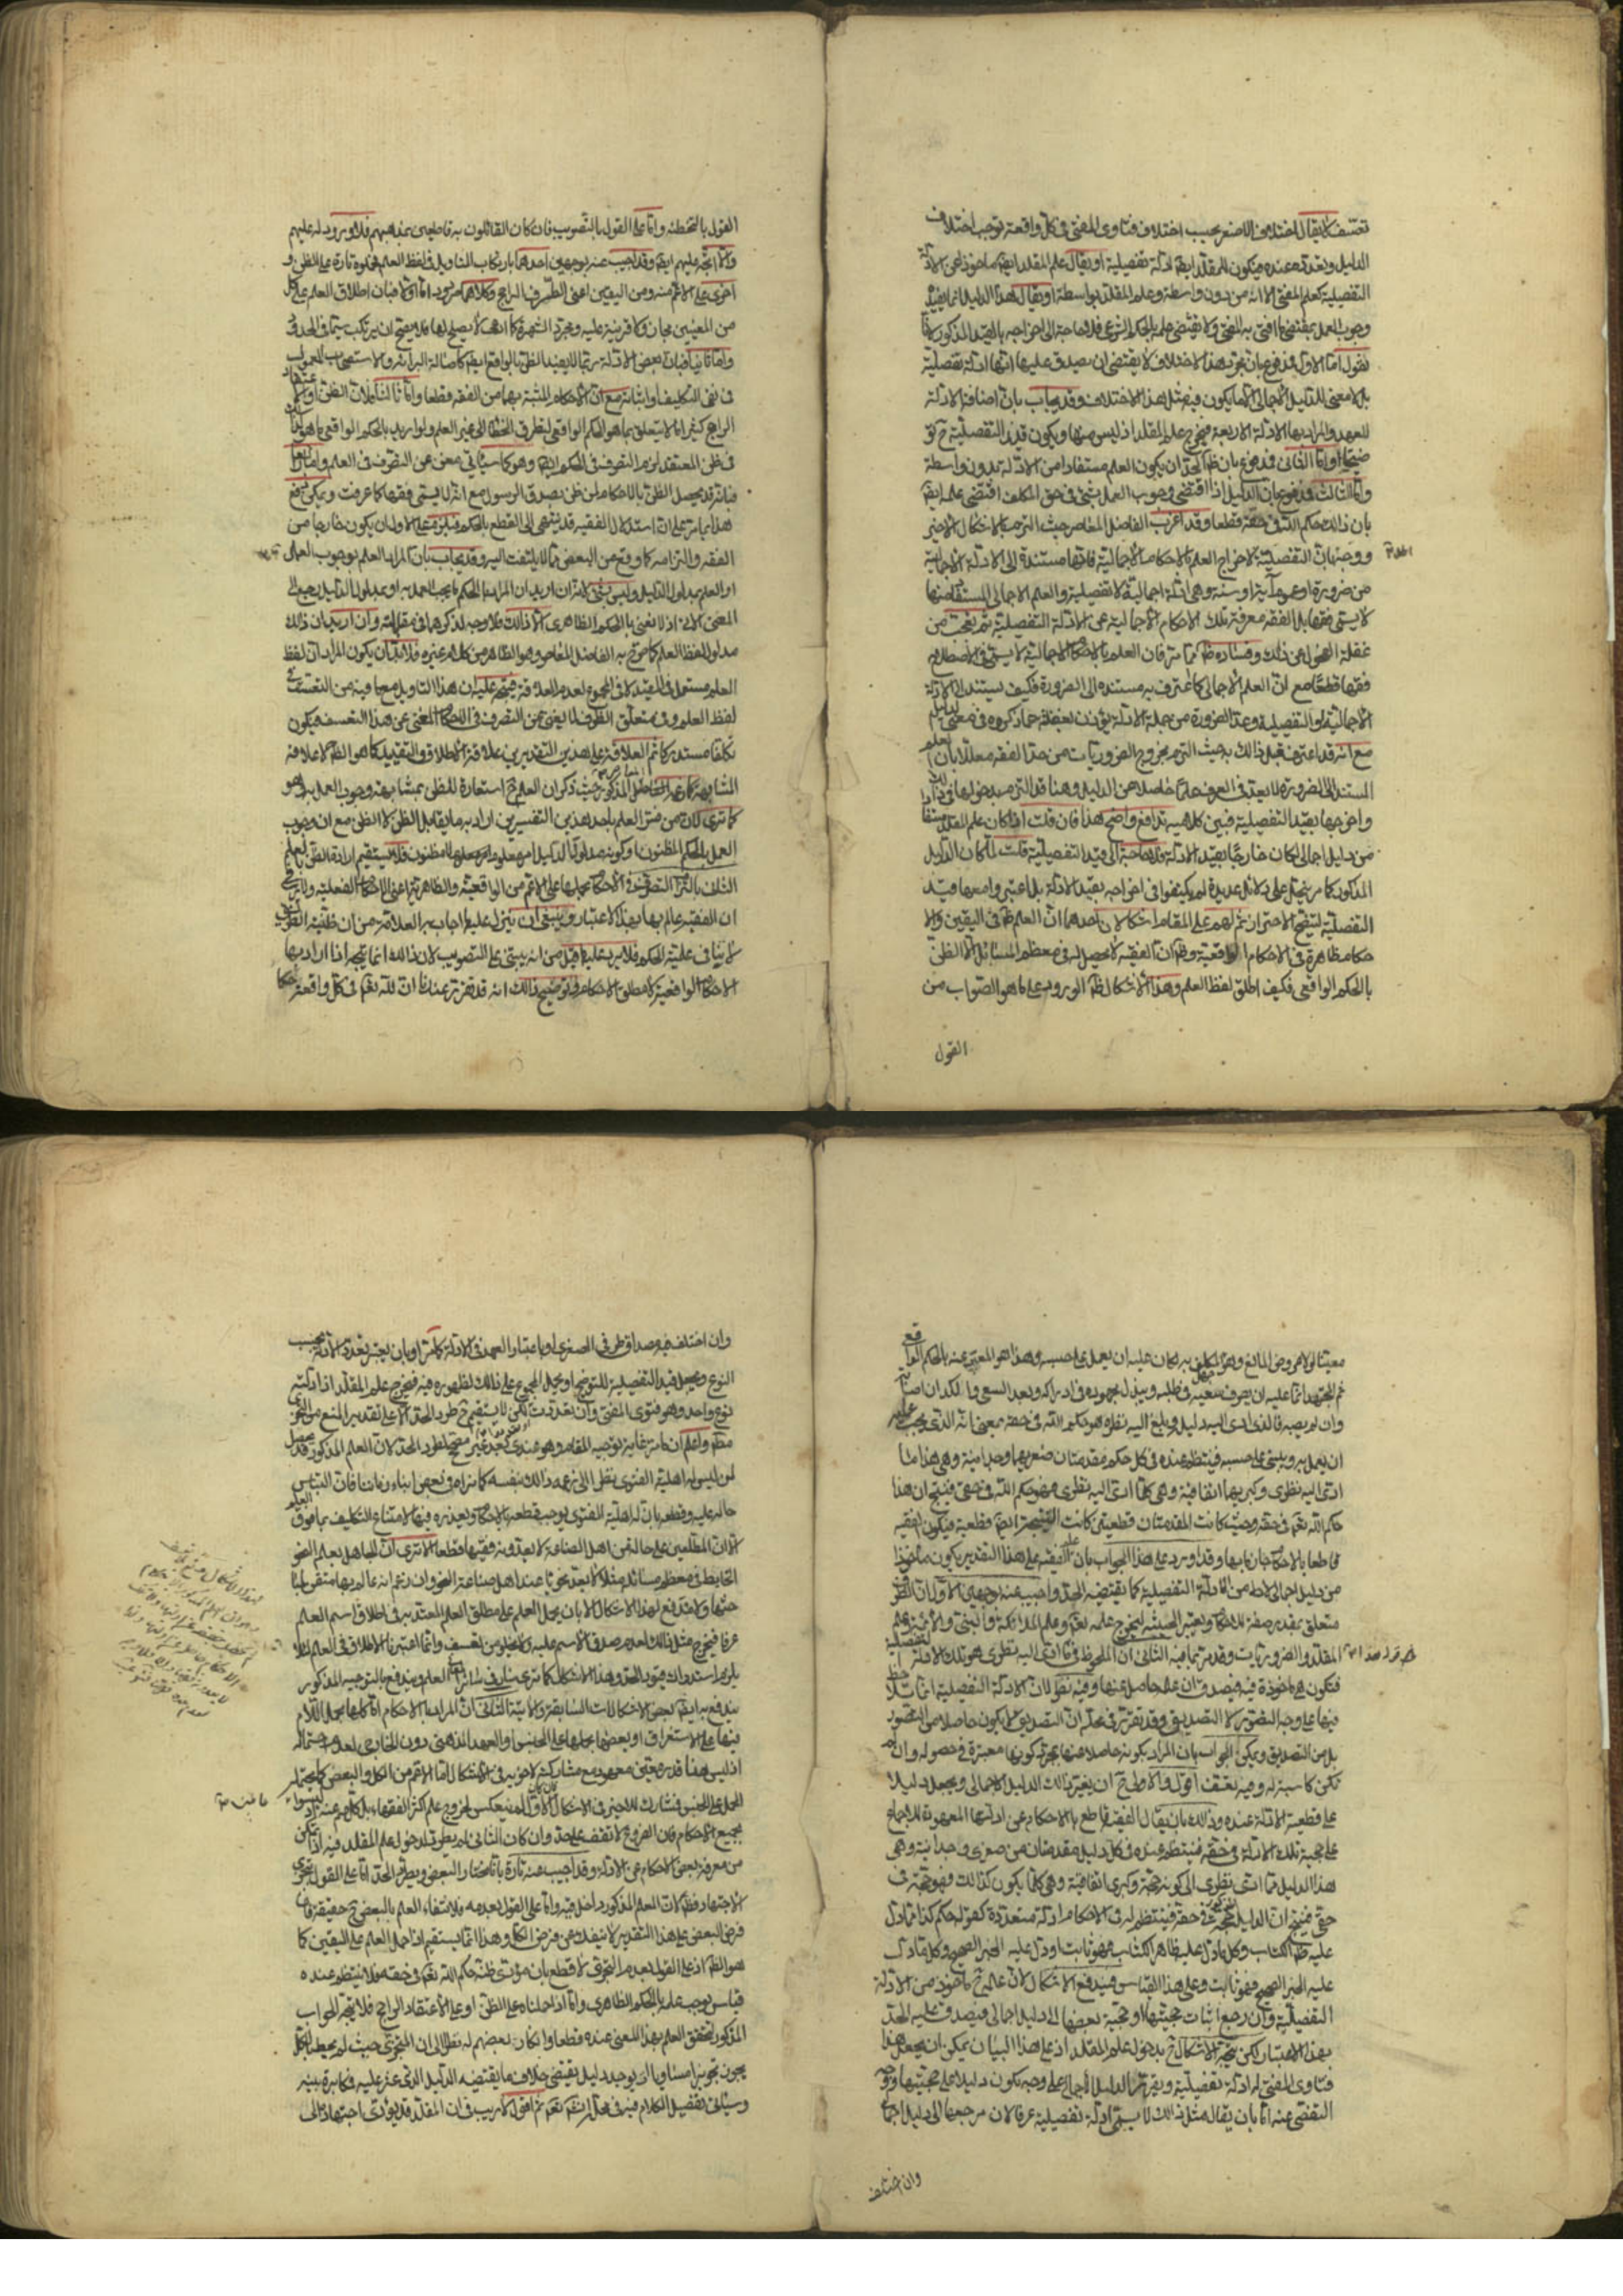 تعسّف لا يقال اختلاف الاصغر بحسب اختلاف فتاوى المفتى فى كل واقعة توجب اختلاف
الدليل وتعدده عنده فيكون للمقلد ايضا ادلة تفصيلية او يقال علم المقلد ايضا ماخوذ عن الادلة
التفصيلية كعلم المفتى الا انه من دون واسطة وعلم المقلد بواسطة او يقال هذا الدليل انما يفيد
وجوب العمل بمقتضى ما افتى به المفتى ولا يقتضى علمه بالحكم الشرعى فلا حاجة الى اخراجه بالقيد المذكور لانا
نقول اما الاول فمدفوع بان مجرد هذا الاختلاف لا يقتضى ان يصدق عليها انها ادلة تفصيلية
بل لا معنى للدليل الاجمالى الا ما يكون فيه مثل هذا الاختلاف وقد يجاب بان اضافة الادلة
للعهد والمراد بها الادلة الاربعة فيخرج علم المقلد اذ ليس منها ويكون قيد التفصيلية ح تو
ضيحيا واما الثانى فمدفوع بان ظ الحد ان يكون العلم مستفادا من الادلة بدون واسطة
واما الثالث فمدفوع بان الدليل اذا اقتضى وجوب العمل بشئ فى حق المكلف اقتضى علمه ايضا
بان ذلك حكم الله فى حقه قطعا وقد اغرب الفاضل المعاصر حيث التزم بالاشكال الاخير
ووجه بان التفصيلية لاخراج العلم بالاحكام الاجمالية فانها مستندة الى الادلة الاجمالية
من ضرورة او عموم آية او سنة وهى ادلة اجمالية لا تفصيلية والعلم الاجمالى المستفاد منها
لا يسمى فقها بل الفقه معرفة تلك الاحكام الاجمالية عن الادلة التفصيلية ثم تعجب من
غفلة الفحول عن ذلك وفساده ظ مما مر فان العلم بالاحكام الاجمالية لا يسمى فى الاصطلاح
فقها قطعا مع ان العلم الاجمالى كما اعترف به مستنده الى الضرورة فكيف يستند الى الادلة
الاجمالية او التفصيلية وعد الضرورة من جملة الادلة يؤذن بغفلته عما ذكروه فى معنى الدليل
مع انه قد اعترف قبل ذلك بحيث التزم بخروج الضروريات من حد الفقه معللا بان العلم
المستند الى الضرورة لا يعد فى العرف علما حاصلا من الدليل وهنا قد التزم بدخولها فى ذلك
واخرجها بقيد التفصيلية فبين كلاميه تدافع واضح هذا فان قلت اذا كان علم المقلد مستفادا
من دليل اجمالى لكان خارجا بقيد الادلة فلا حاجة الى قيد التفصيلية قلت لما كان الدليل
المذكور كما مر ينحل على دلائل عديدة لم يكتفوا فى اخراجه بقيد الادلة بل اعتبروا معها قيد
التفصيلية ليتضح الاحتراز ثم لهم على المقام اشكالان احدهما ان العلم ظ فى اليقين والا
حكام ظاهرة فى الاحكام الواقعية وظ ان الفقيه لا يحصل له فى معظم المسائل الا الظن
بالحكم الواقعى فكيف اطلق لفظ العلم وهذا الاشكال ظ الورود على ما هو الصواب من
القول
القول بالتخطئة واما على القول بالتصويب فان كان القائلون به قاطعين بمذهبهم فلا ورود له عليهم
والا اتجه عليهم ايضا وقد اجيب عنه بوجهين احدهما بارتكاب التاويل فى لفظ العلم فحملوه تارة على الظن و
اخرى على الاعم منه ومن اليقين اعنى الطرف الراجح وكلاهما مردود اما اولا فبان اطلاق العلم على كل
من المعنيين مجاز ولا قرينة عليه ومجرد الشهرة كما ادعى لا يصلح لها فلا يصح ان يرتكب سيما فى الحدود
واما ثانيا فبان بعض الادلة ربما لا يفيد الظن بالواقع ايضا كاصالة البرائة والاستصحاب المعمول
فى نفى التكليف او اثباته مع ان الاحكام المثبتة بهما من الفقه قطعا واما ثالثا فلان الظن او الاعتقاد
الراجح كثيرا ما لا يتعلق بما هو الحكم الواقعى لتطرق الخطأ الى غير العلم ولو اريد بالحكم الواقعى ما هو كذلك
فى ظن المعتقد لزم التصرف فى الحكم ايضا وهو كما سيأتى مغن عن التصرف فى العلم واما رابعا
فبانه قد يحصل الظن بالاحكام لمن ظن بصدق الرسول مع انه لا يسمى فقها كما عرفت ويمكن دفع
هذا بما مر على ان استدلال الفقيه قد ينتهى الى القطع بالحكم فيلزم على الاول ان يكون خارجا من
الفقه والتزامه كما وقع من البعض مما لا يلتفت اليه وقد يجاب بان المراد العلم بوجوب العمل
او العلم بمدلول الدليل وليس بشئ لانه ان اريد ان المراد بالحكم ما يجب العمل به او بمدلول الدليل يرجع الى
المعنى الاتى اذ لا نعنى بالحكم الظاهرى الا ذلك فلا وجه لذكرهما فى مقابلته وان اريد ان ذلك
مدلول لفظ العلم كما صرح به الفاضل المعاصر وهو الظاهر من كلام غيره فلا بد ان يكون المراد ان لفظ
العلم مستعمل فى المقيد لا فى المجموع لعدم العلاقة فيتجه عليه ان هذا التاويل مع ما فيه من التعسف فى
لفظ العلم وفى متعلق الظرف لما يغنى عن التصرف فى الاحكام المغنى عن هذا التعسف فيكون
تكلفا مستدركا ثم العلاقة على هذين التقديرين علاقة الاطلاق والتقييد كما هو الظ لا علاقة
المشابهة كما زعمه الفاضل المذكور حيث ذكر ان العلم ح استعارة للظن بمشابهته وجوب العمل به وهو
كما ترى لان من فسر العلم باحد هذين التفسيرين اراد به ما يقابل الظن لا الظن مع ان وجوب
العمل بالحكم المظنون وكونه مدلولا للدليل امر معلوم لا مظنون فلا يستقيم ارادة الظن بالعلم
الثانى بالتزام التصرف فى الاحكام بحملها على الاعم من الواقعية والظاهرية اعنى الاحكام الفعلية ولا ريب فى
ان الفقيه عالم بها بهذا الاعتبار وينبغى ان ينزل عليه ما اجاب به العلامة من ان ظنية الطريق
لا ينافى علمية الحكم فلا يرد عليه ما قيل من انه يبتنى على التصويب لان ذلك انما يتجه اذا اراد بها
الاحكام الواقعية لا مطلق الاحكام وتوضيح ذلك انه قد تقرر عندنا ان لله تعم فى كل واقعة حكما
معينا لولا عروض المانع وهو المكلف به لكان عليه ان يعمل على حسبه وهذا هو المعبر عنه بالحكم الواقعى
ثم المجتهد انما عليه ان يصرف سعيه فى طلبه ويبذل مجهوده فى ادراكه وبعد السعى والكد ان اصابه
وان لم يصبه فالذى ادى اليه دليل وبلغ اليه نظره هو حكم الله فى حقه بمعنى انه الذى يجب عليه
ان يعمل به ويبنى على حسبه فينتظم عنده فى كل حكم مقدمتان صغريهما وجدانية وهى هذا ما
ادى اليه نظرى وكبريهما اتفاقية وهى كلما ادى اليه نظرى فهو حكم الله فى حقى فينتج ان هذا
حكم الله تعم فى حقه وحيث كانت المقدمتان قطعيتين كانت النتيجة ايضا قطعية فيكون الفقيه
قاطعا بالاحكام جازما بها وقد اورد على هذا الجواب بان علم الفقيه على هذا التقدير يكون ماخوذا
من دليل اجمالى لا من الادلة التفصيلية كما يقتضيه الحد واجيب عنه بوجهين الاول ان الظرف
متعلق بمقدر صفة للاحكام ويعتبر الحيثية ليخرج علمه تعم وعلم الملائكة والنبى والائمة وعلم
المقلد والضروريات وقد مر تمامية الثانى ان الملحوظ فيما ادى اليه نظرى هو تلك الادلة التفصيلية
فتكون هى ماخوذة فيه فيصدق ان علمه حاصل عنها وفيه نظر لان الادلة التفصيلية انما تلاحظ
فيها على وجه التصور لا التصديق وقد تقرر فى محله ان التصديق لا يكون حاصلا من التصور
بل من التصديق ويمكن الجواب بان المراد بكونه حاصلا عنها مجرد كونها معتبرة فى حصوله وان لم
تكن كاسبة له وفيه تعسف اقول والاولى ح ان يغير ذلك الدليل الاجمالى ويجعل دليلا
على قطعية الادلة عنده وذلك بان يقال الفقيه قاطع بالاحكام عن ادلتها المعهودة للاجماع
على حجية تلك الادلة فى حقه فينتظم عنده فى كل دليل مقدمتان من صغرى وجدانية وهى
هذا الدليل مما ادى نظرى الى كونه حجة وكبرى اتفاقية وهى كلما يكون كذلك فهو حجة فى
حقى فينتج ان الدليل المذكور حجة فى حقه فينتظم له فى الاحكام ادلة متعددة كقوله حكم كذا مما دل
عليه ظ الكتاب وكل ما دل عليه ظاهر الكتاب فهو ثابت او دل عليه الخبر الصحيح وكل ما دل
عليه الخبر الصحيح فهو ثابت وعلى هذا القياس فيندفع الاشكال لان علمه ح ماخوذ من الادلة
التفصيلية وان رجع اثبات حجيتها او حجية بعضها الى دليل اجمالى فيصدق عليه الحد
بهذا الاعتبار لكن يتجه الاشكال ح بدخول علم المقلد اذ على هذا البيان يمكن ان يجعل هذا
فتاوى المفتى له ادلة تفصيلية ويقرر الدليل الاجمالى على وجه يكون دليلا على حجيتها ووجه
التفصى عنه اما بان يقال مثل ذلك لا يسمى ادلة تفصيلية عرفا لان مرجعها الى دليل اجمالى
وان اختلف
وان اختلف مصداق طرفى الصغرى او باعتبار العهد فى الادلة كما مر او بان يعتبر تعدد الادلة بحسب
النوع ويجعل قيد التفصيلية للتوضيح او يحمل المجموع على ذلك لظهوره فيه فيخرج علم المقلد اذ ادلته
نوع واحد وهو فتوى المفتى وان تعددت لكن لا يستقيم ح طرد الحد الا على تقدير المنع من التجزى
مطلقا واعلم ان ما مر غاية توجيه المقام وهو عندى بعد غير مصحح لطرد الحد لان العلم المذكور قد يحصل
لمن ليس له اهلية الفتوى نظرا الى زعمه ذلك بنفسه كما نراه فى بعض ابناء زماننا فان التباس
حاله عليه وقطعه بان له اهلية الفتوى يوجب قطعه بالاحكام وبعذره فيها لامتناع التكليف بما فوق العلم
الا ان المطلعين على حاله من اهل الصناعة لا يعدونه فقيها قطعا الا ترى ان الجاهل بعلم النحو
الخابط فى معظم مسائله مثلا لا يعد نحويا عند اهل صناعة النحو وان زعم انه عالم بها متقن لمبا
حثها ولا مدفع لهذا الاشكال الا بان يحمل العلم على مطلق العلم المعتد به فى اطلاق اسم العلم
عرفا فيخرج مثل ذلك لعدم صدق الاسم عليه ولا يخلو من تعسف وانما اعتبرنا الاطلاق فى العلم لئلا
يلزم استدراك قيود الحد وهذا الاشكال كما ترى سار فى سائر حدود العلم ويندفع بالتوجيه المذكور
يندفع به ايضا بعض الاشكالات السابقة والاتية الثانى ان المراد بالاحكام اما كلها بحمل اللام
فيها على الاستغراق او بعضها بحملها على الجنس او العهد الذهنى دون الخارجى لعدم احتماله
اذ ليس هنا قدر معين معهود مع مشاركته لاخويه فى الاشكال اما الاعم من الكل والبعض كما يحتمله
الحمل على الجنس فيشارك للاخير فى الاشكال فان كان الاول لم ينعكس لخروج علم اكثر الفقهاء بل كلهم عنه اذ ليسوا عالمين
بجميع الاحكام فان الفروع لا تقف على حد وان كان الثانى لم يطرد لدخول علم المقلد فيه اذا تمكن
من معرفة بعض الاحكام عن الادلة وقد اجيب عنه تارة باختيار البعض ويطرد الحد اما على القول بتجزى
الاجتهاد فظ لان العلم المذكور داخل فيه واما على القول بعدمه فلانتفاء العلم بالبعض ح حقيقة فان
فرض البعض على هذا التقدير لا ينفك عن فرض الكل وهذا انما يستقيم اذا حمل العلم على اليقين كما
هو الظ اذ على القول بعدم التجزى لا قطع بان مؤدى ظنه حكم الله تعم فى حقه فلا ينتظم عنده
قياس يوجب علمه بالحكم الظاهرى واما اذا حملناه على الظن او على الاعتقاد الراجح فلا يتجه الجواب
المذكور لتحقق العلم بهذا المعنى عنده قطعا وانكار بعضهم له نظرا الى ان المتجزى حيث لم يحط بالكل
يجوز تجويزا مساويا ان يوجد دليل يقتضى خلاف ما يقتضيه الدليل الذى عثر عليه مكابرة بينة
وسيأتى تفصيل الكلام فيه فى محله ان شاء الله تعم ثم اقول لا ريب فى ان المقلد قد يؤدى اجتهاده الى